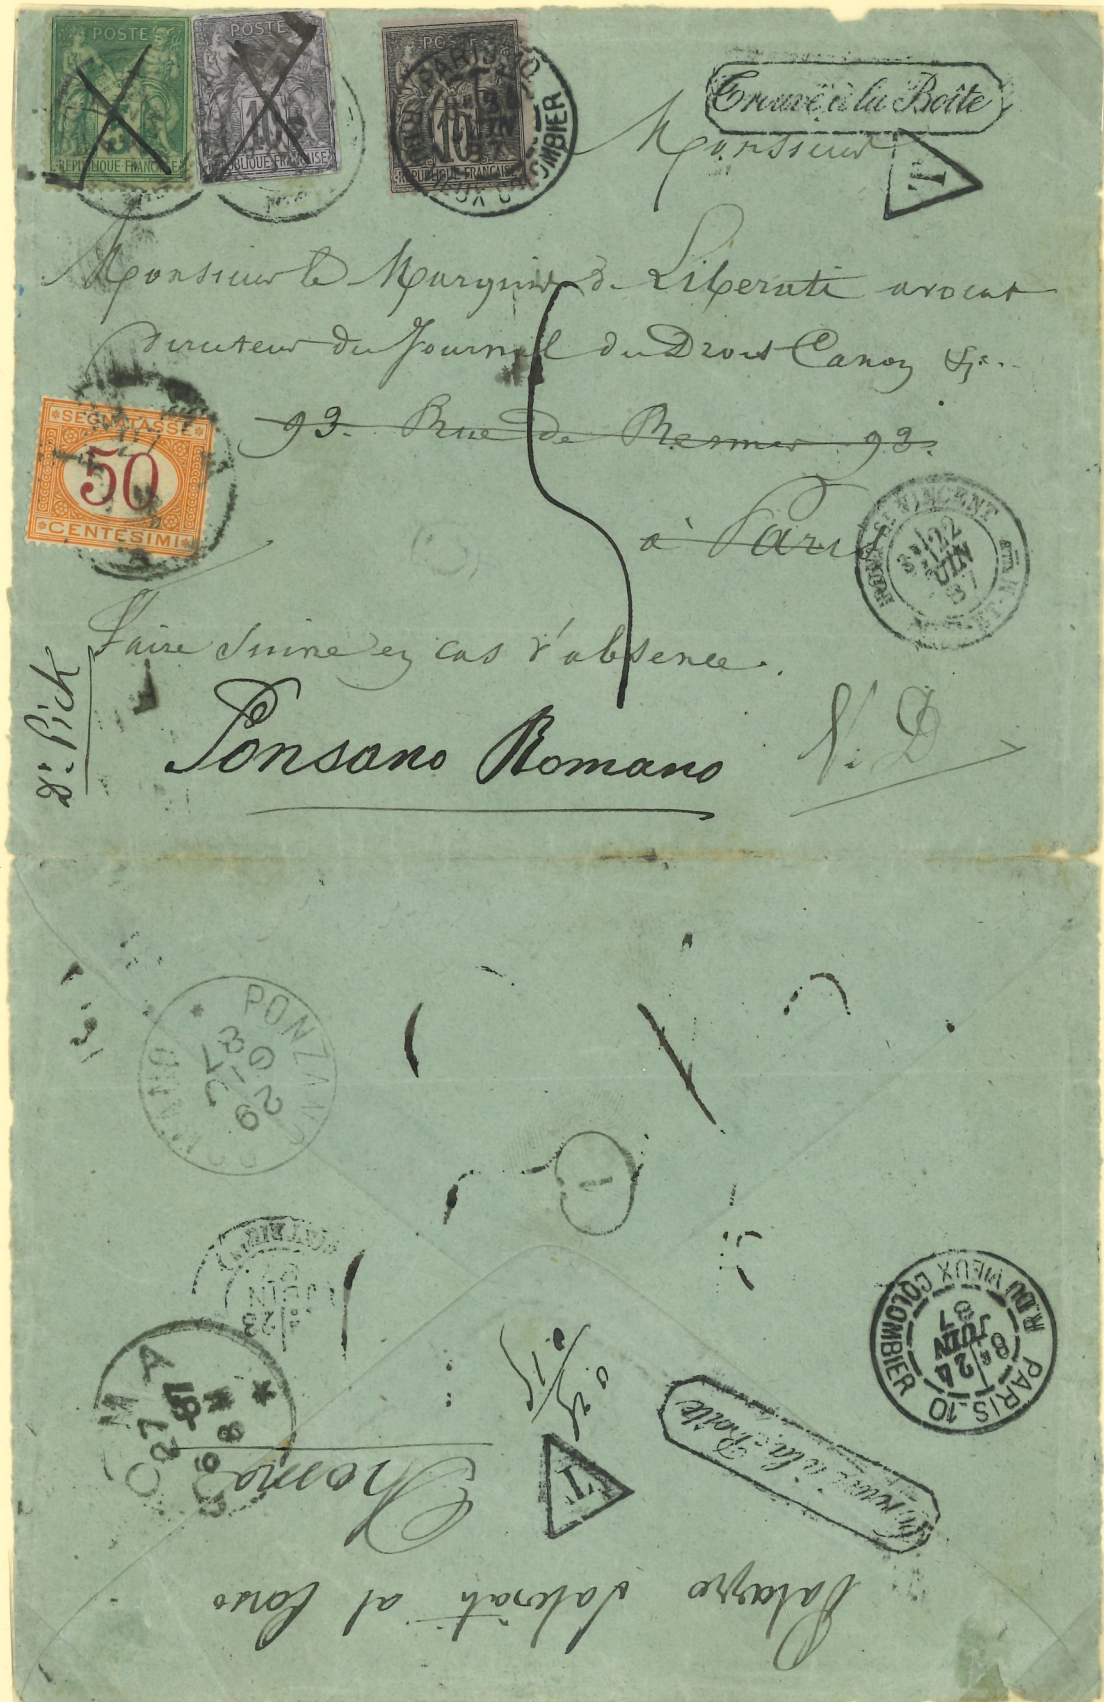 POSTES
5
REPUBLIQUE FRANÇAISE
POSTES
10
REPUBLIQUE FRANÇAISE
POSTES
10
REPUBLIQUE FRANÇAISE
PARIS 10 R. DU VIEUX COLOMBIER
Trouvé à la Boîte
T
Monsieur
Monsieur le Marquis de Liberati avocat
Directeur du Journal du Droit Canon &c.
93. Rue de Rennes 93.
à Paris
SEGNATASSE
50
CENTESIMI
5
ST VINCENT
22
JUIN
87
Faire suivre en cas d'absence.
Dr. Pick
Ponsano Romano
V. D
PONZANO ROMANO
29
87
JUIN
ROMA
27
87
PARIS 10 R. DU VIEUX COLOMBIER
8E
24
JUIN
87
Trouvé à la Boîte
T
Roma
Palazzo Liberati al Corso